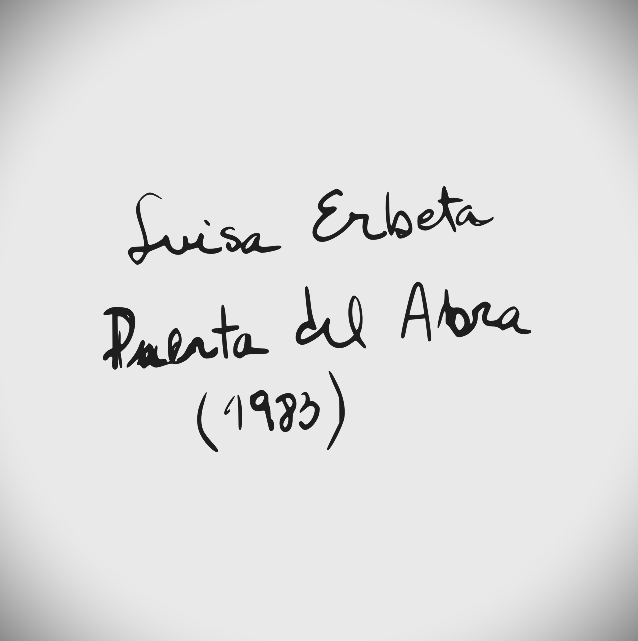 Luisa Erbeta
Puerta del Abra
(1983)